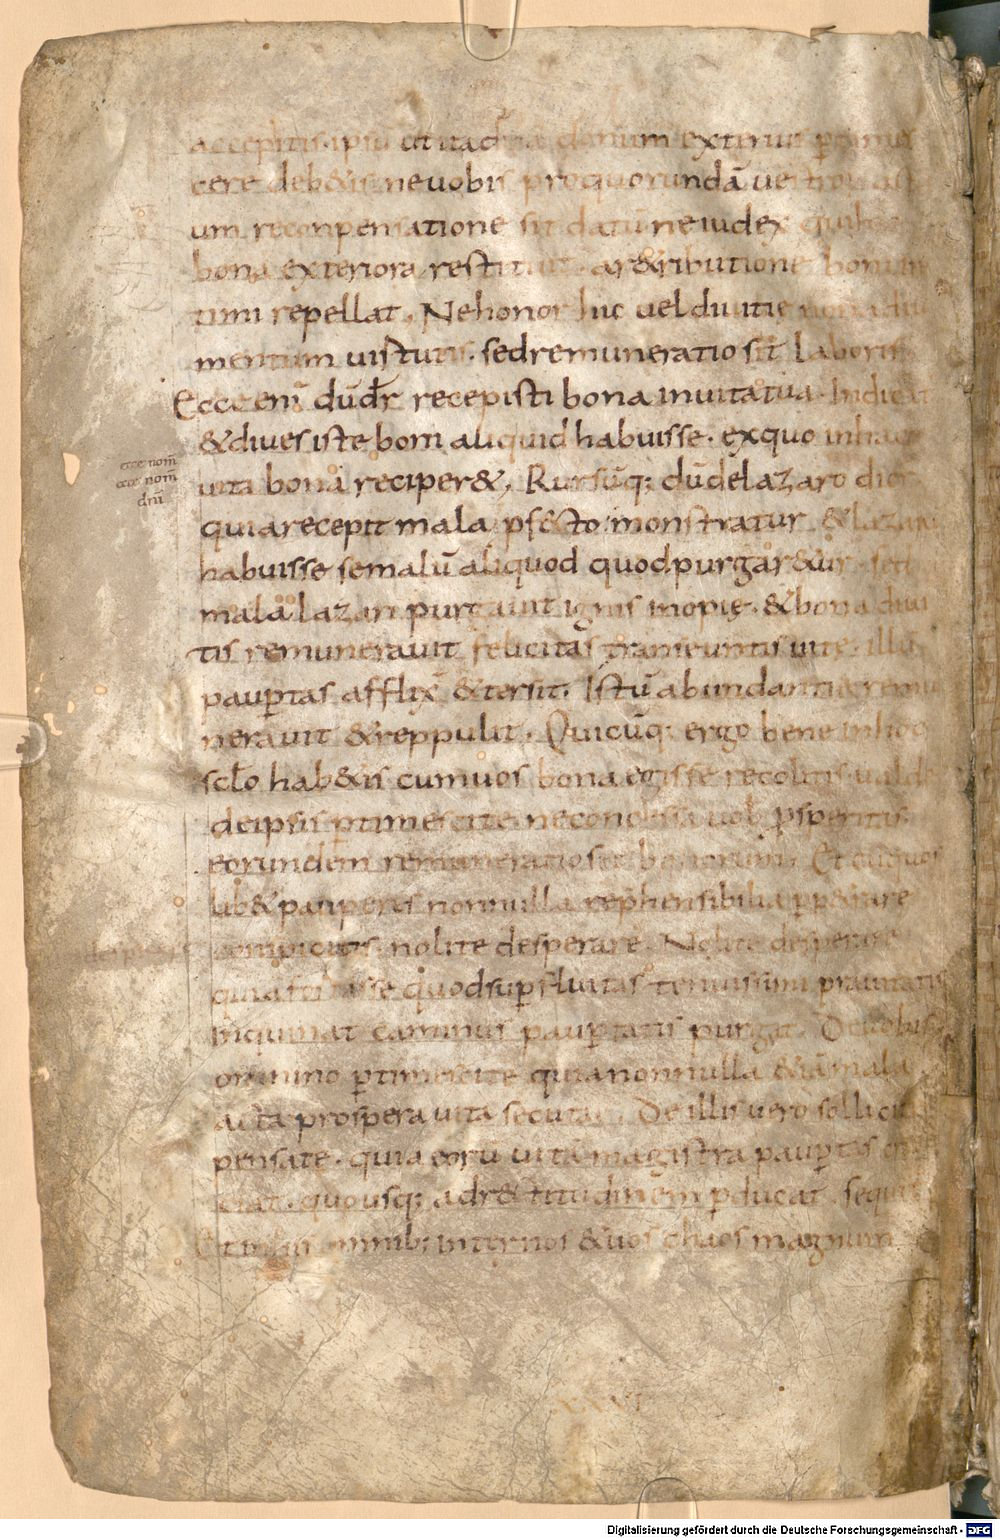 acceptis ipsū etitaq; donum exterius ptimes
cere deb&is ne uobis pro quorundā uestrorū acti
um reconpensatione sit datū ne iudex qui hic
bona exteriora restituit a r&ributione bonum
timi repellat. Ne honor hic uel diuitię non
mentum uirtutis. sed remuneratio sit laboris
Ecce enī dū dr recepisti bona in uita tua. Indicat
& diues iste boni aliquid habuisse. ex quo in hac
uita bona reciper&, Rursūq; dū de lazaro
quia recepit mala pfecto monstratur & lazarū
habuisse se malū aliquod quod purgar&ur. sed
mala lazari purgauit ignis inopię. & bona diui
tis remunerauit felicitas transeuntis uitę. illū
paupertas afflix & tersit. Istū abundantia remu
nerauit & reppulit. Quicūq; ergo bene in hoc
sclo hab&is cum uos bona egisse recolitis. ualde
de ipsis ptimescite. ne concessa uob psperitas
eorundem remuneratio sit bonorum. Et cū quos
lib& pauperes nonnulla rephensibilia pp&rare
conspicitis. nolite desperare. Nolite desperare
quia fortasse quod supfluitas tenuissimi prauitatis
inquinat caminus paupertatis purgat. De uobis
omnino ptimescite quia nonnulla &iā mala
acta prospera uita secuta. De illis uero sollicite
pensate. quia eorū uitā magistra paupertas cru
ciat. quousq; ad rectitudinem pducat. sequitur
Et in his omnib; inter nos & uos chaos magnum
ecce nom
ecce nom
dni
XXVI
Digitalisierung gefördert durch die Deutsche Forschungsgemeinschaft - DFG